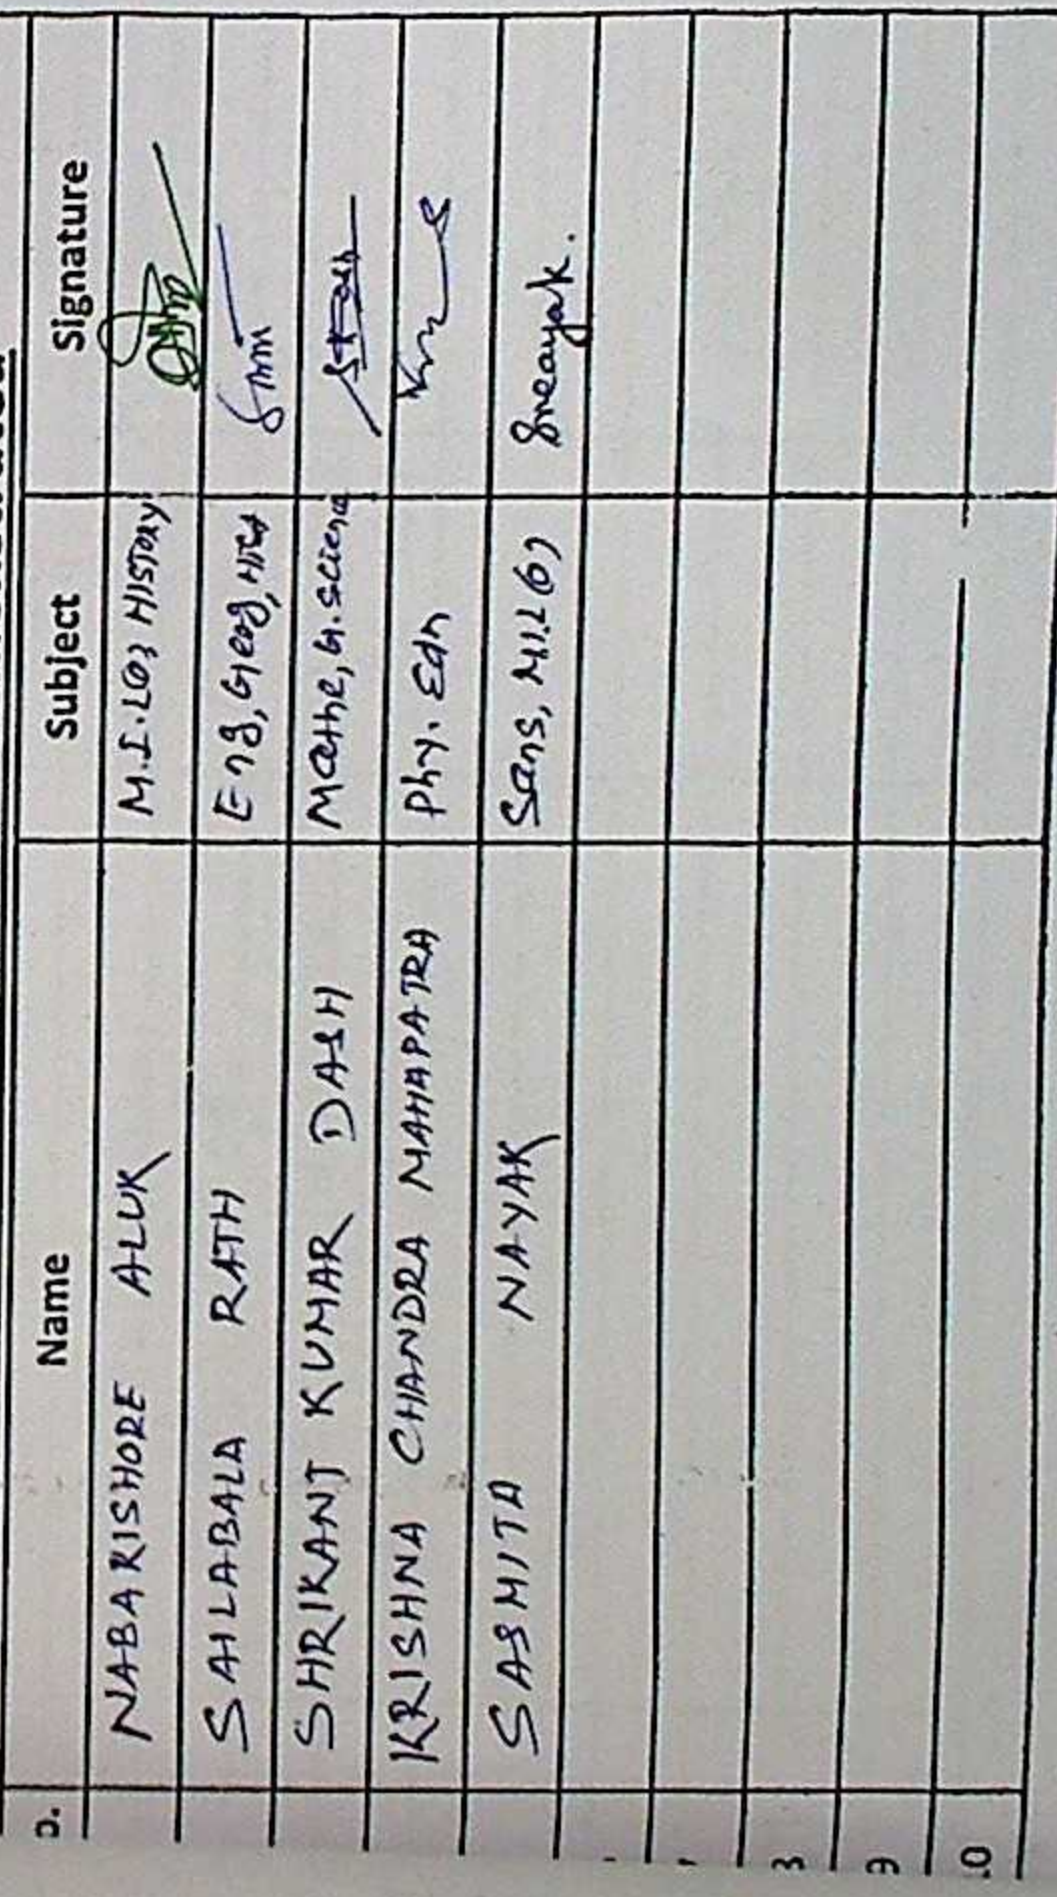 Name Subject Signature
NABAKISHORE ALUK M.I.L(O) HISTORY
SAILABALA RATH Eng, Geog, Hist
SHRIKANT KUMAR DASH Mathe, G. Science
KRISHNA CHANDRA MAHAPATRA Phy. Edn
SASMITA NAYAK Sans, M.I.L(O) Snayak.